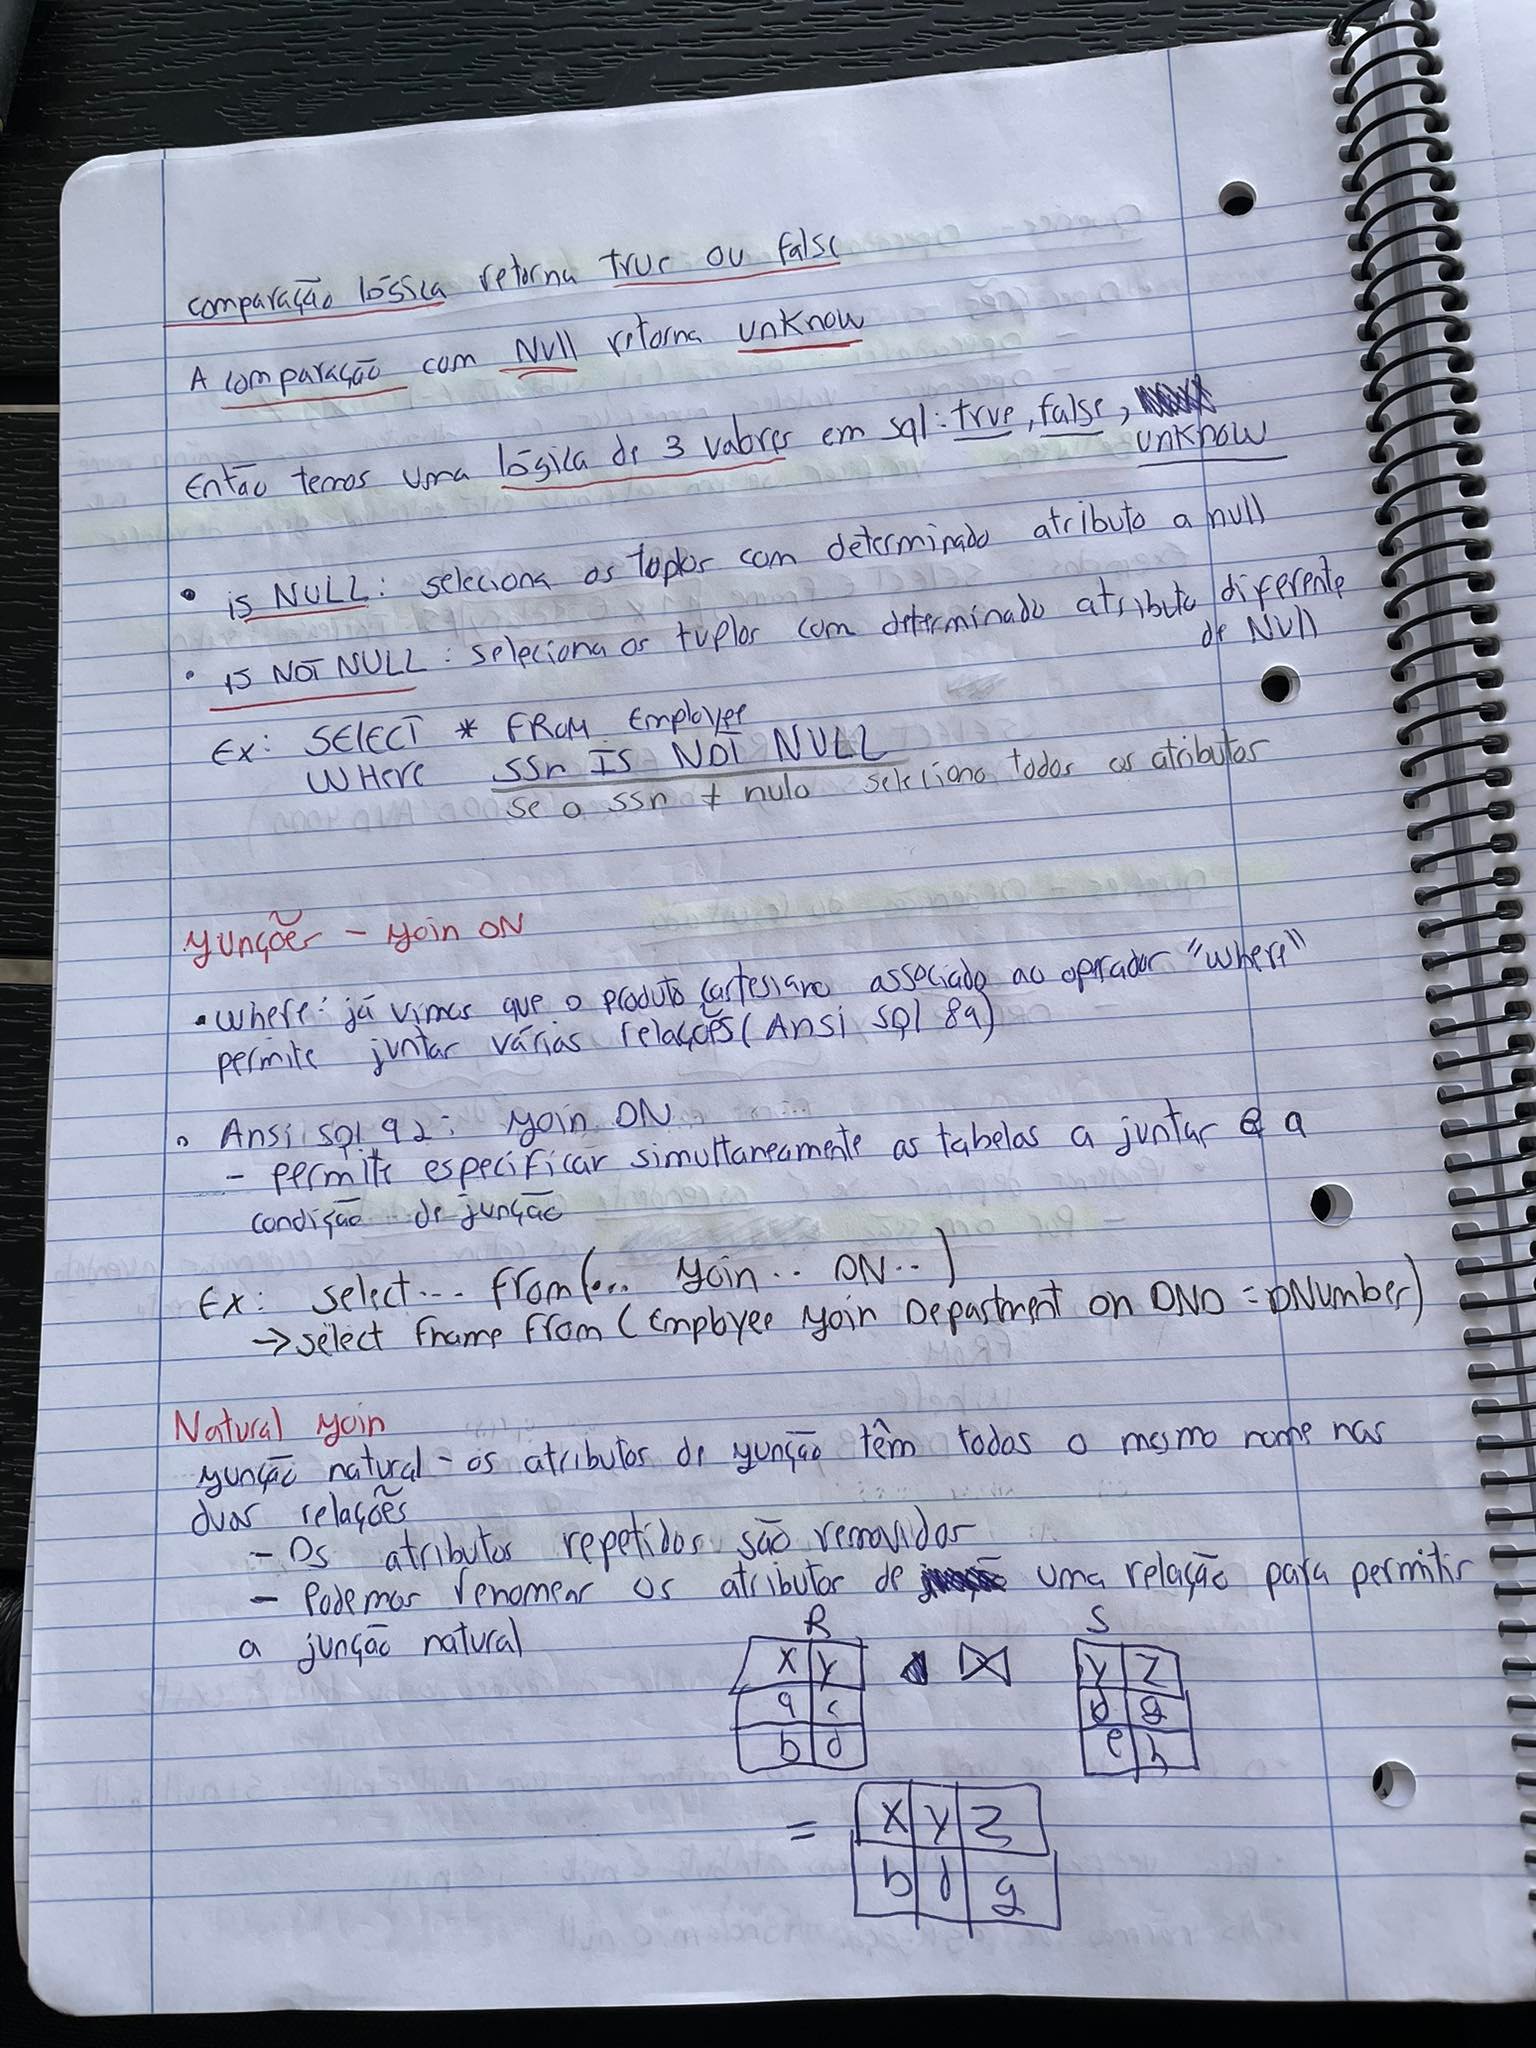 comparação lógica retorna true ou false
A comparação com Null retorna unknow
Então temos uma lógica de 3 valores em sql: true, false,
unknow
• is NULL: seleciona os tuplos com determinado atributo a null
• is NOT NULL: seleciona os tuplos com determinado atributo diferente
de Null
Ex: SElECT * FROM Employee
WHere ssn IS NOT NULL
se o ssn ≠ nulo seleciona todos os atributos
Junções - Join ON
• where: já vimos que o produto cartesiano associado ao operador "where"
permite juntar várias relações (Ansi SQl 89)
• Ansi sql 92: Join ON
- permite especificar simultaneamente as tabelas a juntar e a
condição de junção
Ex: select... from(... Join.. ON..)
→ select Fname from (Employee Join Department on DNO = DNumber)
Natural Join
Junção natural - os atributos de Junção têm todos o mesmo nome nas
duas relações
- Os atributos repetidos são removidos
- Podemos renomear os atributos de uma relação para permitir
a junção natural
R S
X Y ⋈ Y Z
a c d g
b d e h
= X Y Z
b d g